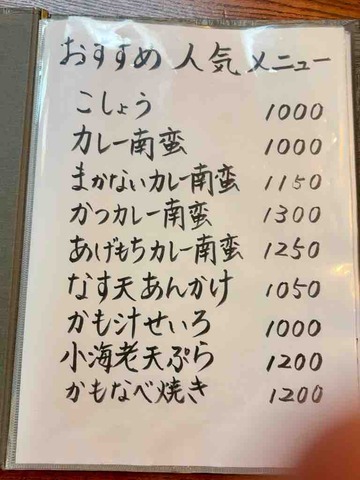 おすすめ 人気 メニュー
こしょう 1000
カレー南蛮 1000
まかないカレー南蛮 1150
かつカレー南蛮 1300
あげもちカレー南蛮 1250
なす天あんかけ 1050
かも汁せいろ 1000
小海老天ぷら 1200
かもなべ焼き 1200